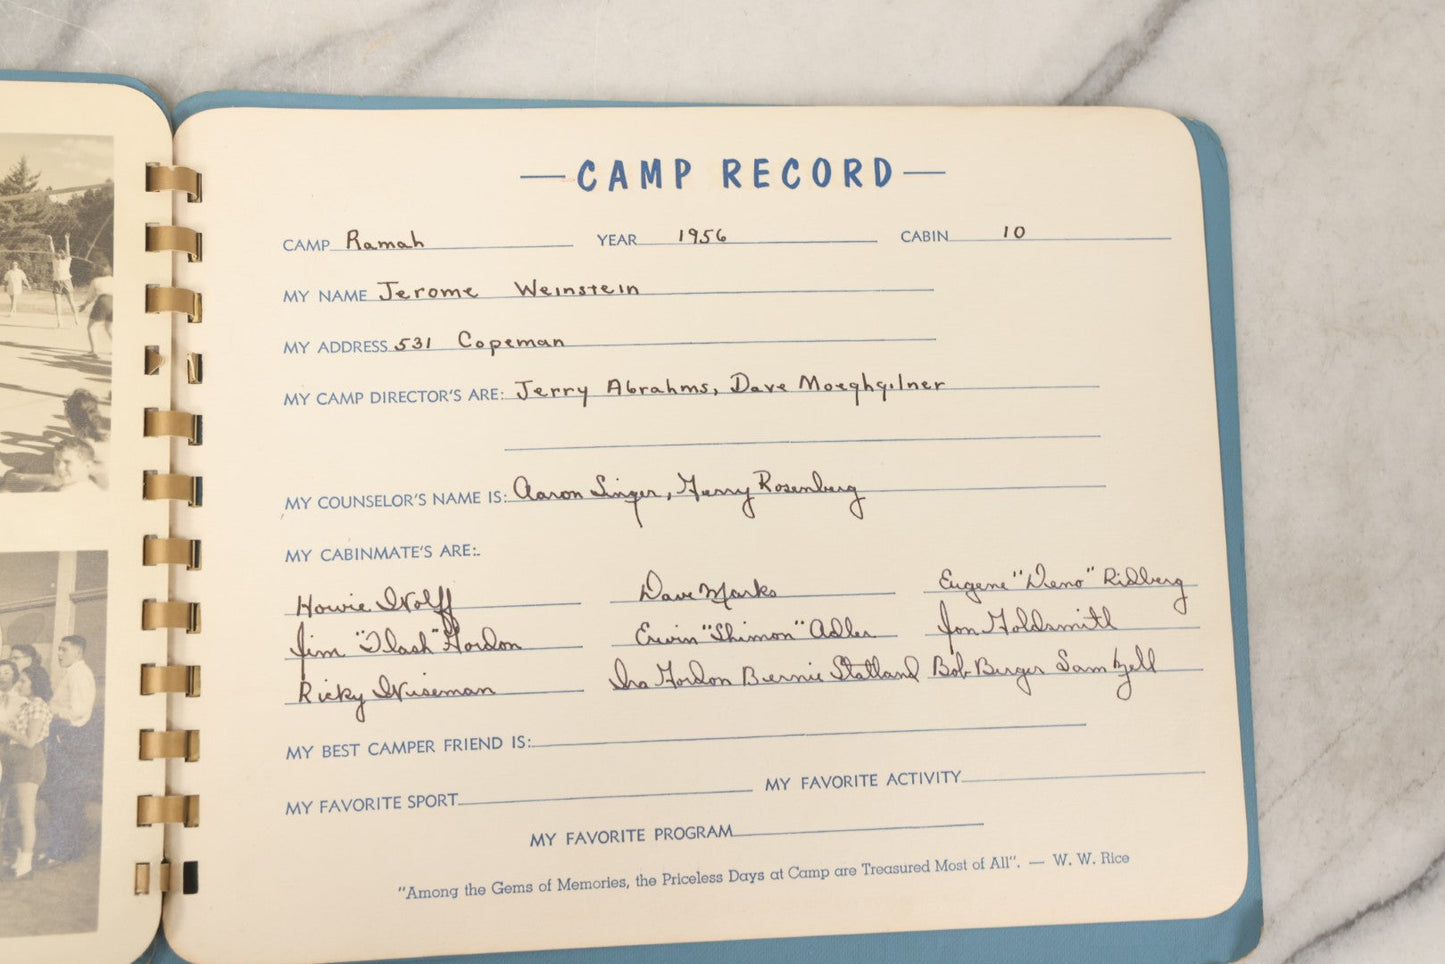 — CAMP RECORD —
CAMP Ramah YEAR 1956 CABIN 10
MY NAME Jerome Weinstein
MY ADDRESS 531 Copeman
MY CAMP DIRECTOR'S ARE: Jerry Abrahms, Dave
MY COUNSELOR'S NAME IS: Aaron Singer, Gerry Rosenberg
MY CABINMATE'S ARE:
Howie Wolff Dave Marks Eugene "Deno" Ridberg
Jim "Flash" Gordon Erwin "Shimon" Adler Jon Goldsmith
Ricky Wiseman Ira Gordon Bernie Statland Bob Berger Sam Zell
MY BEST CAMPER FRIEND IS:
MY FAVORITE SPORT MY FAVORITE ACTIVITY
MY FAVORITE PROGRAM
"Among the Gems of Memories, the Priceless Days at Camp are Treasured Most of All". — W. W. Rice